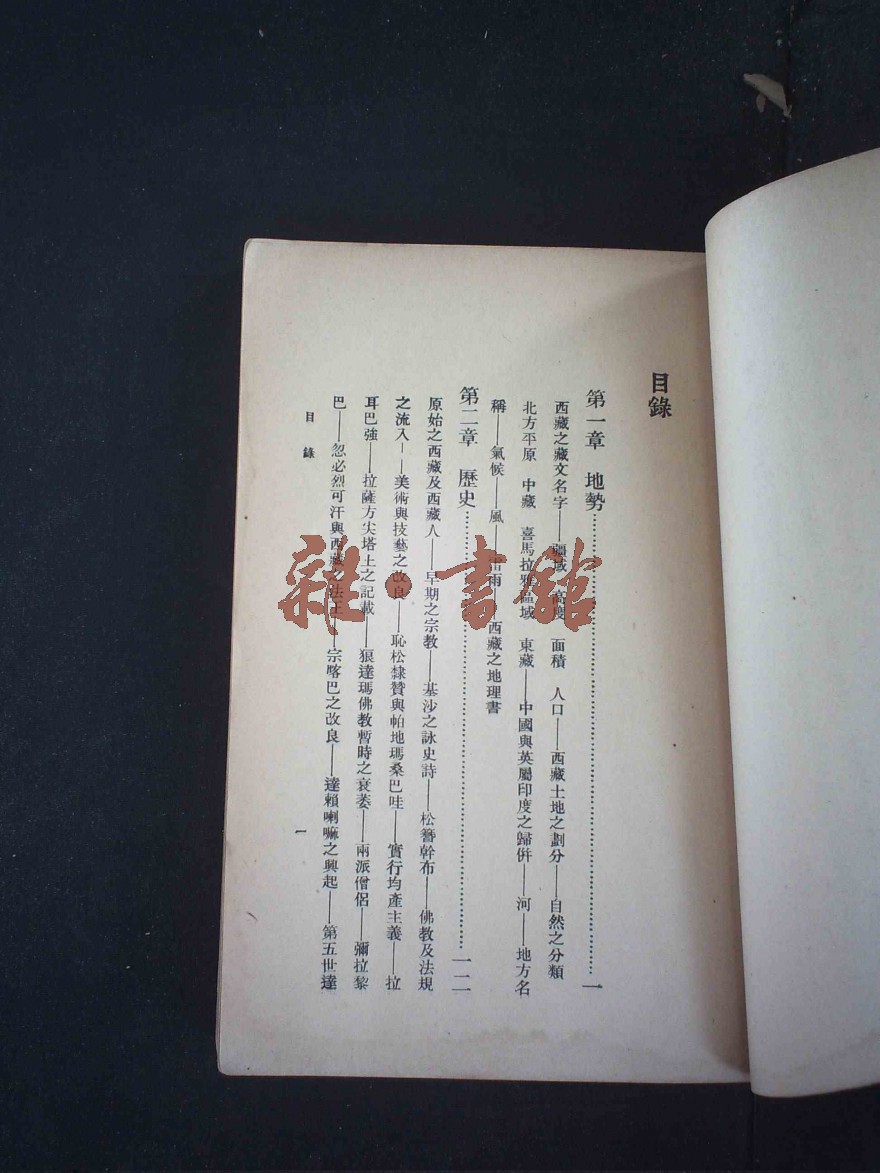 目錄
第一章 地勢……一
西藏之藏文名字——疆域 高度 面積 人口——西藏土地之劃分——自然之分類
北方平原 中藏 喜馬拉雅區域 東藏——中國與英屬印度之歸併——河——地方名
稱——氣候——風——雷雨——西藏之地理書
第二章 歷史……一二
原始之西藏及西藏人——早期之宗教——基沙之詠史詩——松贊幹布——佛教及法規
之流入——美術與技藝之改良——恥松隸贊與帕地瑪桑巴哇——實行均產主義——拉
耳巴強——拉薩方尖塔上之記載——狼達瑪佛教暫時之衰萎——兩派僧侶——彌拉黎
巴——忽必烈可汗與西藏之法王——宗喀巴之改良——達賴喇嘛之興起——第五世達
目錄
一
雜·書館